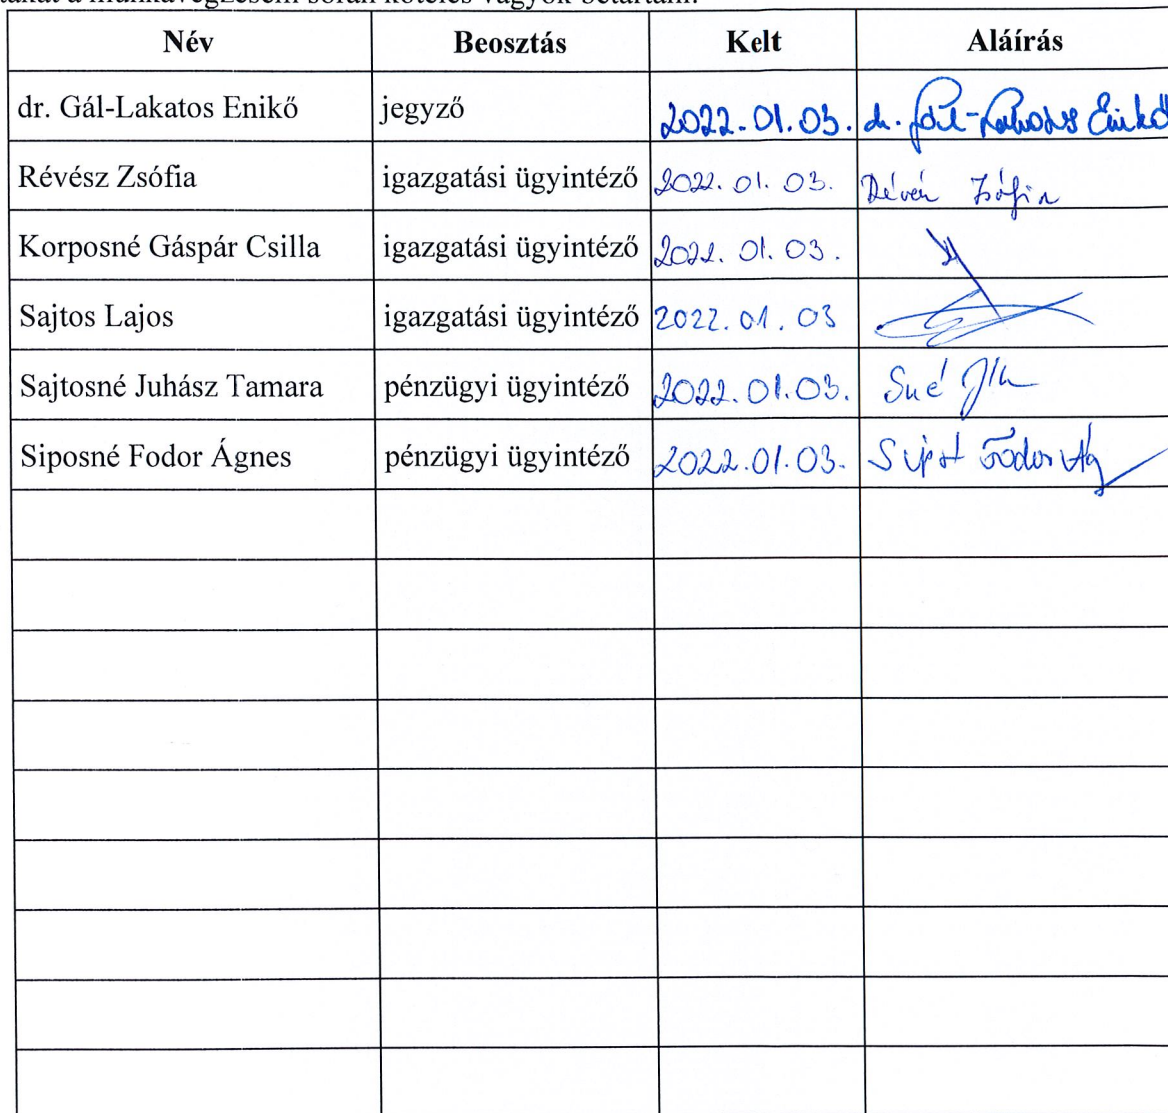 a munkavégzésem során köteles vagyok betartani.
Név Beosztás Kelt Aláírás
dr. Gál-Lakatos Enikő jegyző 2022.01.03. dr. Gál-Lakatos Enikő
Révész Zsófia igazgatási ügyintéző 2022.01.03. Révész Zsófia
Korposné Gáspár Csilla igazgatási ügyintéző 2022.01.03.
Sajtos Lajos igazgatási ügyintéző 2022.01.03
Sajtosné Juhász Tamara pénzügyi ügyintéző 2022.01.03.
Siposné Fodor Ágnes pénzügyi ügyintéző 2022.01.03. Fodor